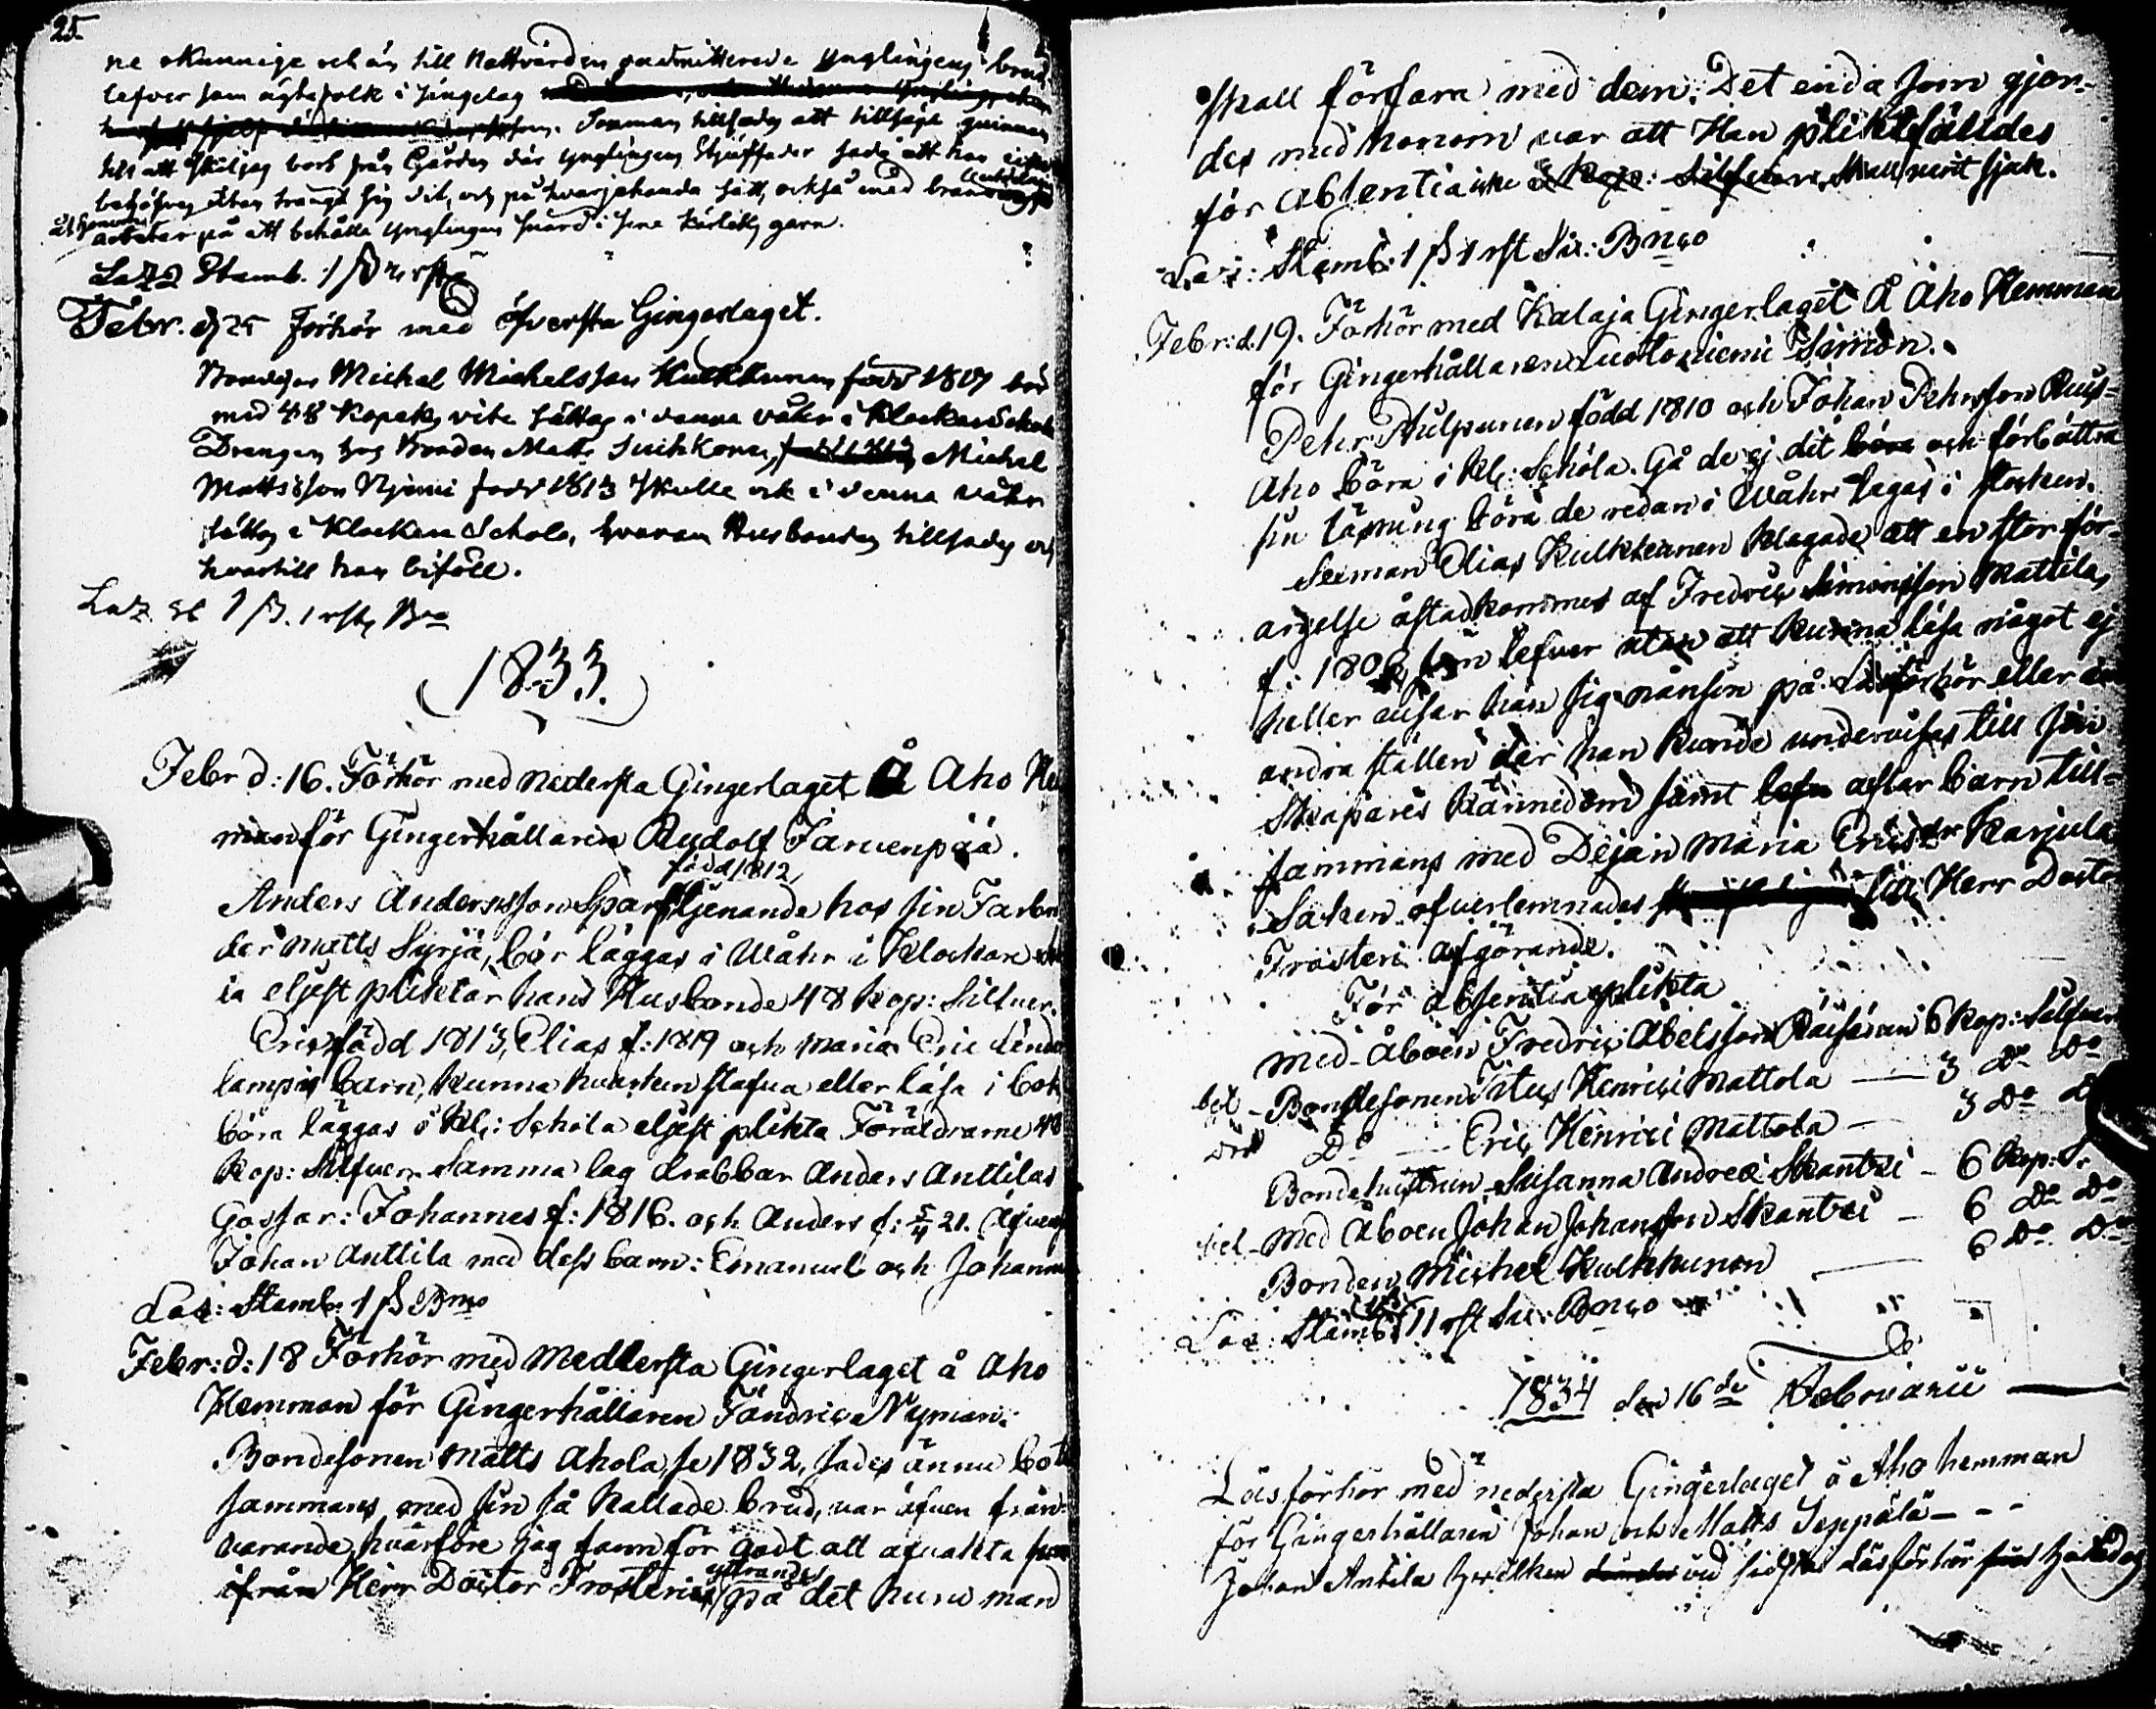 25.
ne okunnige och än till Nattvarden oadmitterade Ynglingens brud,
lefver som äktafolk i sängelag
Sexman tillsades att tillsäga qvinnan
att skilja sig bort från Gården där Ynglingens Stjuffader sade att hon icke
behöfves utan trängt sig dit, och på hvarjehanda sätt, också med bränvin
arbetar på att behålla ynglingen snärd i sina kärleks garn.
Febr. d 25 Förhör med öfversta Gingerlaget.
Bondeson Michel Michelsson Kulkkunen född 1807 bör
med 48 Kopeks vite sättas i denna våhr i Klockare Schola
Drengen hos Bonden Matts Suihkonen, Michel
Mattsson Njemi född 1813 skulle ock i denna våhr
sättas i Klockare Schola, hvarom Husbonden tillsades och
hvartill han biföll.
1833.
Febr d: 16. Förhör med nedersta Gingerlaget å Aho He
man för Gingerhållaren Rudolf Jarvenpää.
född 1812,
Anders Andersson Sparf tjenande hos sin Farbro
der Matts Syrjä, bör läggas i Wåhr i Klockare
la eljest pliktar hans Husbonde 48 kop: Silfver.
Eric född 1813, Elias f: 1819 och Maria Eric Linda
lampis barn, kunna hvarken stafva eller läsa i bok
böra läggas i Kl: Schola eljest plikta Föräldrarne 48
Kop: Silfver. Samma lag drabbar Anders Anttilas
Gossar: Johannes f: 1816. och Anders f: 5/4 21. Äfven
Johan Anttila med dess barn: Emanuel och Johanna
Las: Stamb. 1 ß Bnco
Febr: d: 18 Förhör med Medlersta Gingerlaget å Aho
Hemman för Gingerhållaren Fändric Nyman.
Bondesonen Matts Ahola, se 1832, sades ännu bo till
sammans med sin så kallade brud, var äfven från-
varande, hvarföre jag fann för godt att afvakta
ifrån Herr Doctor Frosterus yttrande på det huru man
skall förfara med dem. Det enda som gjor-
des med honom var att Han pliktfälldes
för absentia
Las: Stamb: 1 ß 1 rst Sv: Bnco
Febr: d. 19. Förhör med Kalaja Gingerlaget å Aho Hemman
för Gingerhållaren Luotoniemi Simon.
Pehr Hulpunen född 1810 och Johan Pehrsson Ruus-
aho böra i Kl: Schola. Gå de ej dit bör och förbättra
sin läsning böra de redan i Wåhr tagas i stocken.
Sexman Elias Kulkkunen klagade att en stor för-
argelse åstadkommes af Fredric Simonsson Mattila,
f: 1808, som lefver utan att kunna läsa något ej
heller ansar han sig nånsin på Läsförhör eller
andra ställen der han kunde undervisas till sin
Skapares kännedom samt aflar barn till-
sammans med Dejan Maria Ericsdr Karjula.
Saken öfverlemnades till Herr Doctor
Frosteri afgörande.
För absentia plikta
med- Åboen Fredric Abelsson Räisänen 6 kop: Silfver
bet - Bondesonen Titus Henrici Mattola — 3 Do Do
Do — Eric Henrici Mattola — 3 Do
Bondehustrun Susanna Andreæ Skantzi - 6 kop: Sr
bet - med Åboen Johan Johansson Skantzi - 6 Do Do
Bonden Michel Kulkkunen — 6 Do Do
Las: Stamb: 11 rst Sv: Bnco
1834 den 16de Februarii
Läsförhör med nedersta Gingerlaget å Aho hemman
för Gingerhållaren Johan och Matts Seppälä - - -
Johan Antila hvilken vid sidsta Läsförhör